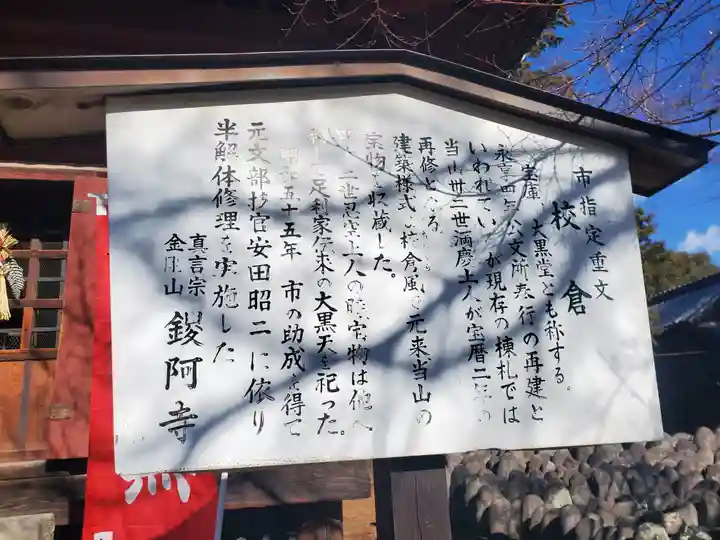 市指定重文
校倉
宝庫 大黒堂とも称する。
永享四年公文所奉行の再建と
いわれてい が現存の棟札では
当山卅二世満慶上人が宝暦二年の
再修となる
建築様式 校倉風 元来当山の
宝物を収蔵した。
二世忍空上人の時宝物は他へ
足利家伝来の大黒天を祀った。
昭和五十五年 市の助成を得て
元文部技官安田昭二に依り
半解体修理を実施した
真言宗
金剛山
鑁阿寺